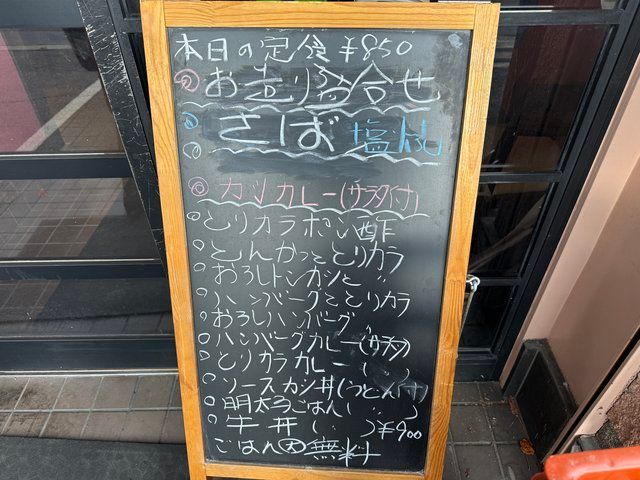 本日の定食 ¥850
◎ お造り盛合せ
○ さば 塩焼
○
◎ カツカレー(サラダ付)
○ とりカラポン酢
○ とんかつととりカラ
○ おろしトンカツ
○ ハンバーグととりカラ
○ おろしハンバーグ
○ ハンバーグカレー(サラダ)
○ とりカラカレー( 〃 )
○ ソースカツ丼(うどん付)
○ 明太子ごはん( 〃 )
○ 牛丼( 〃 )¥900
ごはん大無料